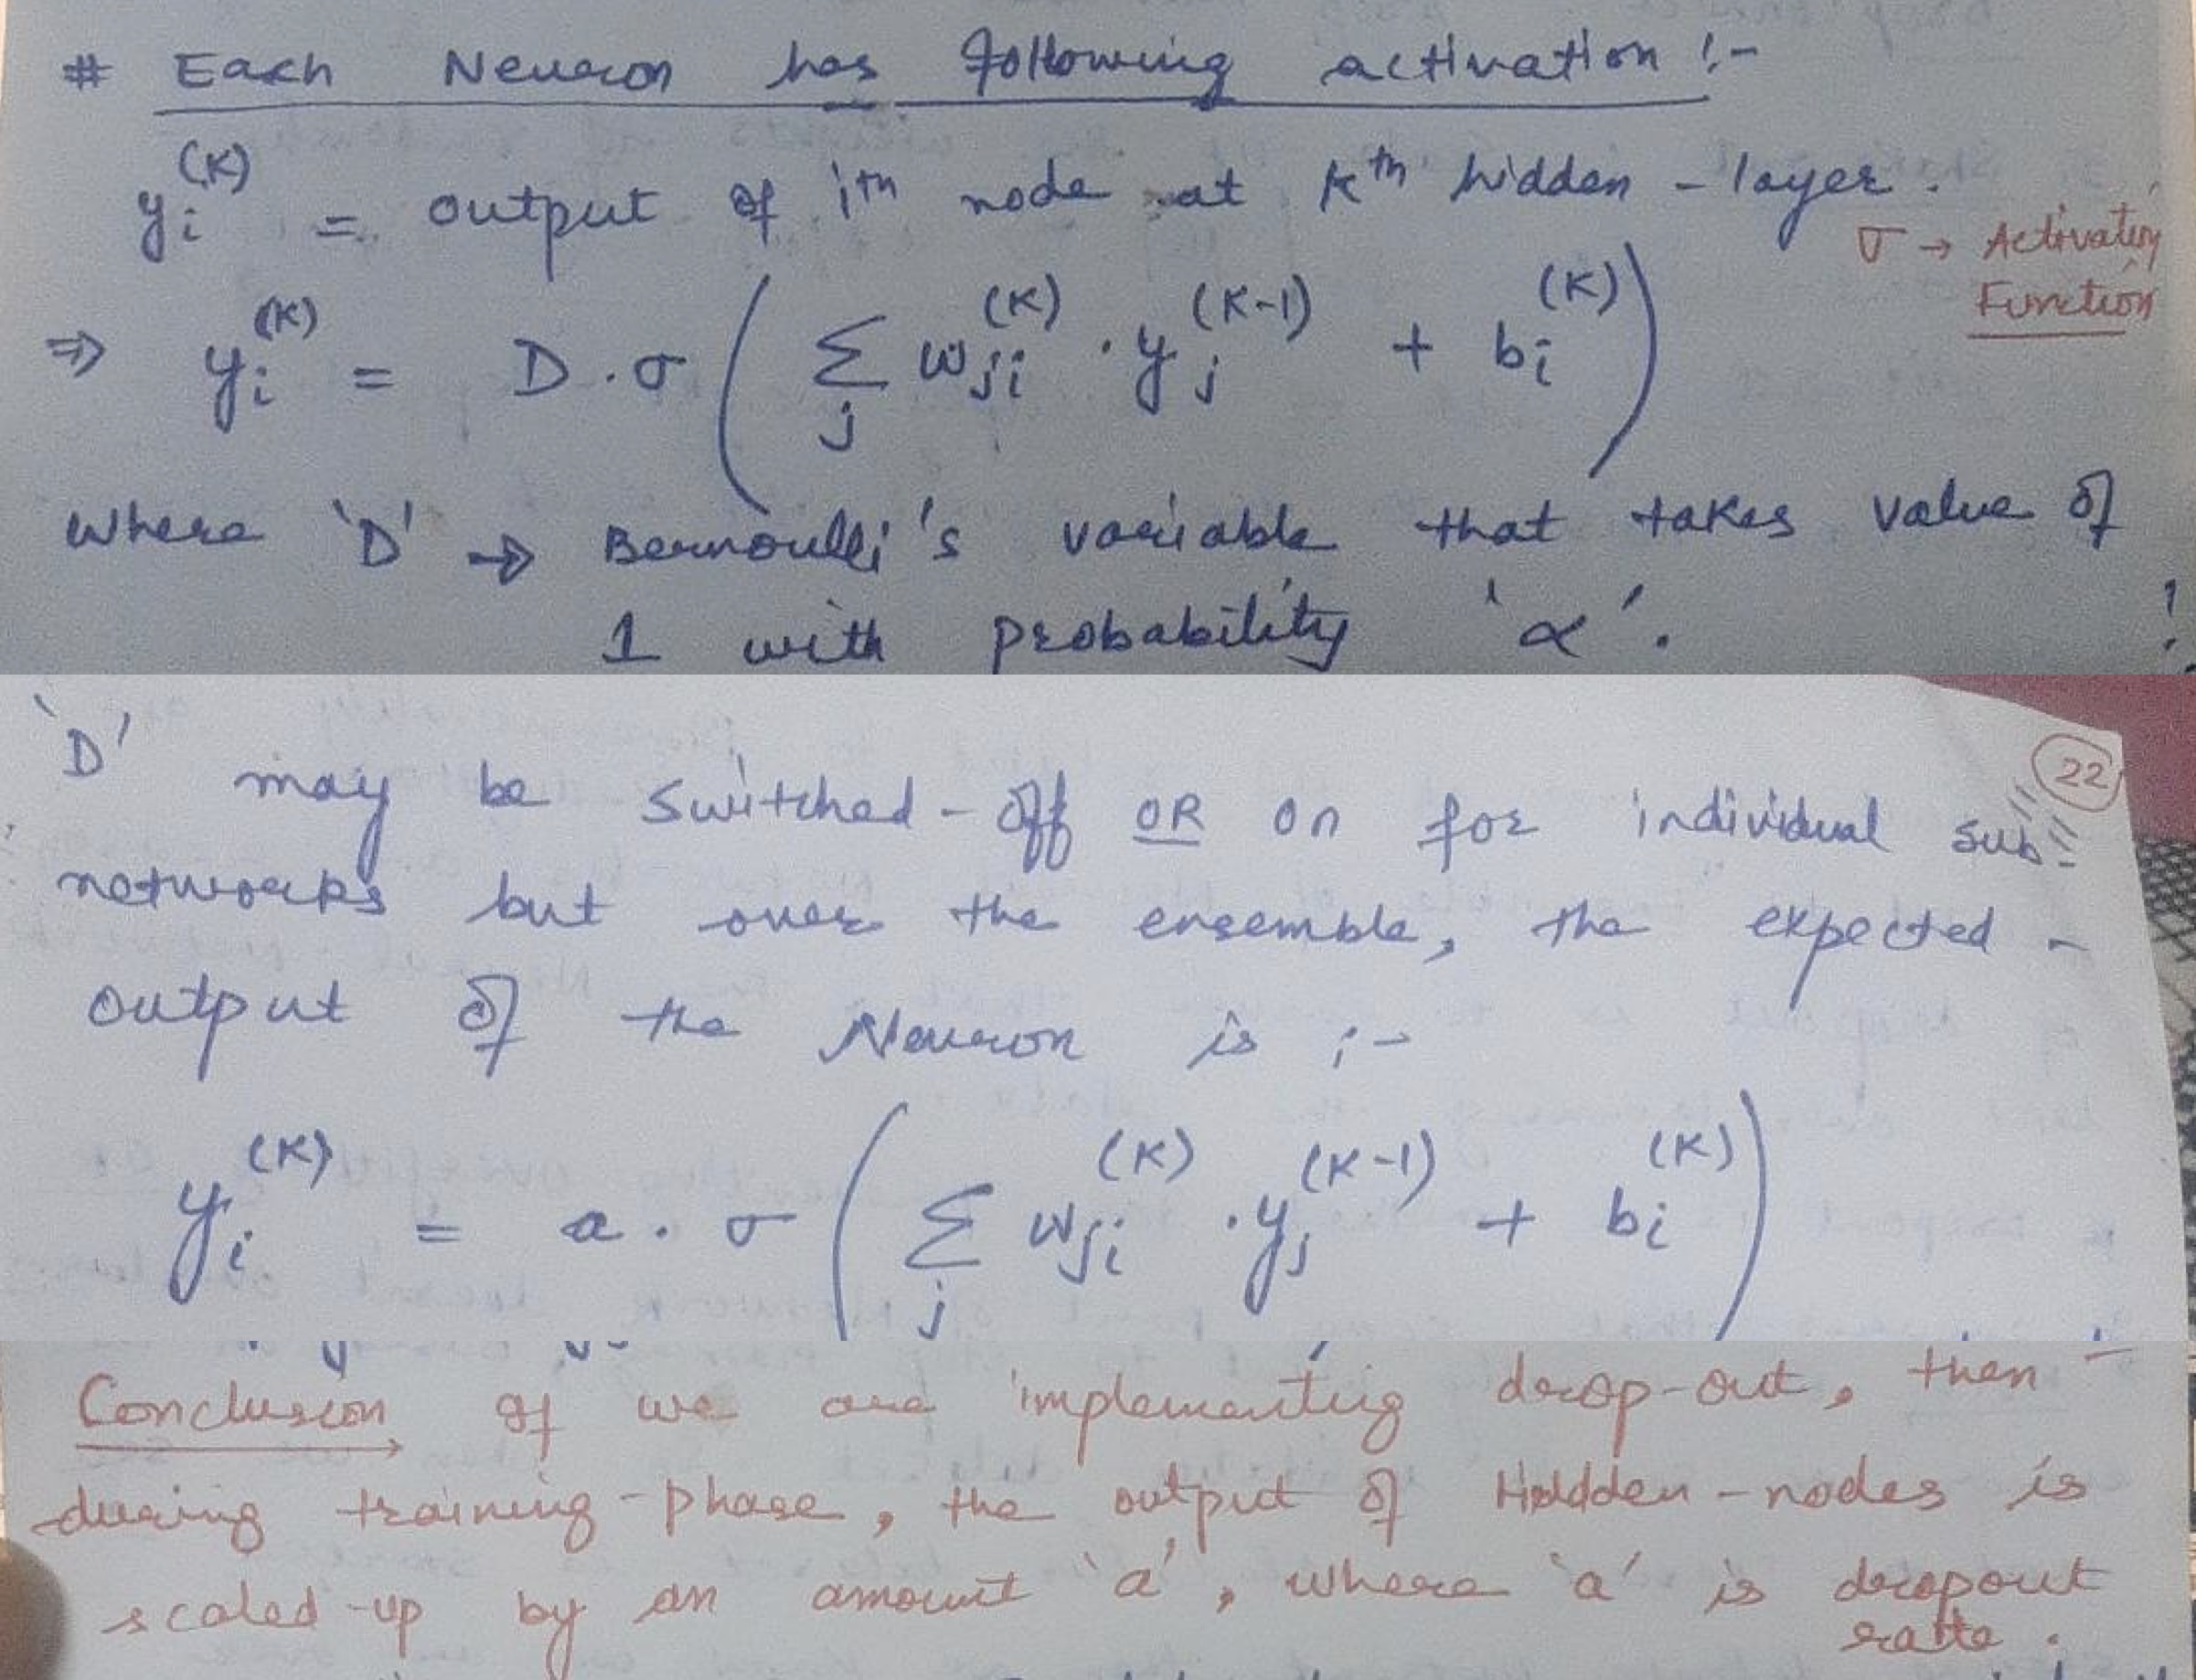 # Each Neuron has following activation :-
yᵢ⁽ᴷ⁾ = output of iᵗʰ node at Kᵗʰ hidden-layer.
σ → Activation
Function
⇒ yᵢ⁽ᴷ⁾ = D . σ ( Σⱼ wⱼᵢ⁽ᴷ⁾ . yⱼ⁽ᴷ⁻¹⁾ + bᵢ⁽ᴷ⁾ )
where 'D' → Bernoulli's variable that takes value of
1 with probability 'α'.
22
'D' may be switched-off OR on for individual sub-
networks but over the ensemble, the expected -
output of the Neuron is :-
yᵢ⁽ᴷ⁾ = a . σ ( Σⱼ wⱼᵢ⁽ᴷ⁾ . yⱼ⁽ᴷ⁻¹⁾ + bᵢ⁽ᴷ⁾ )
Conclusion If we are implementing drop-out, then -
during training-phase, the output of Hidden-nodes is
scaled-up by an amount 'a', where 'a' is dropout
rate.